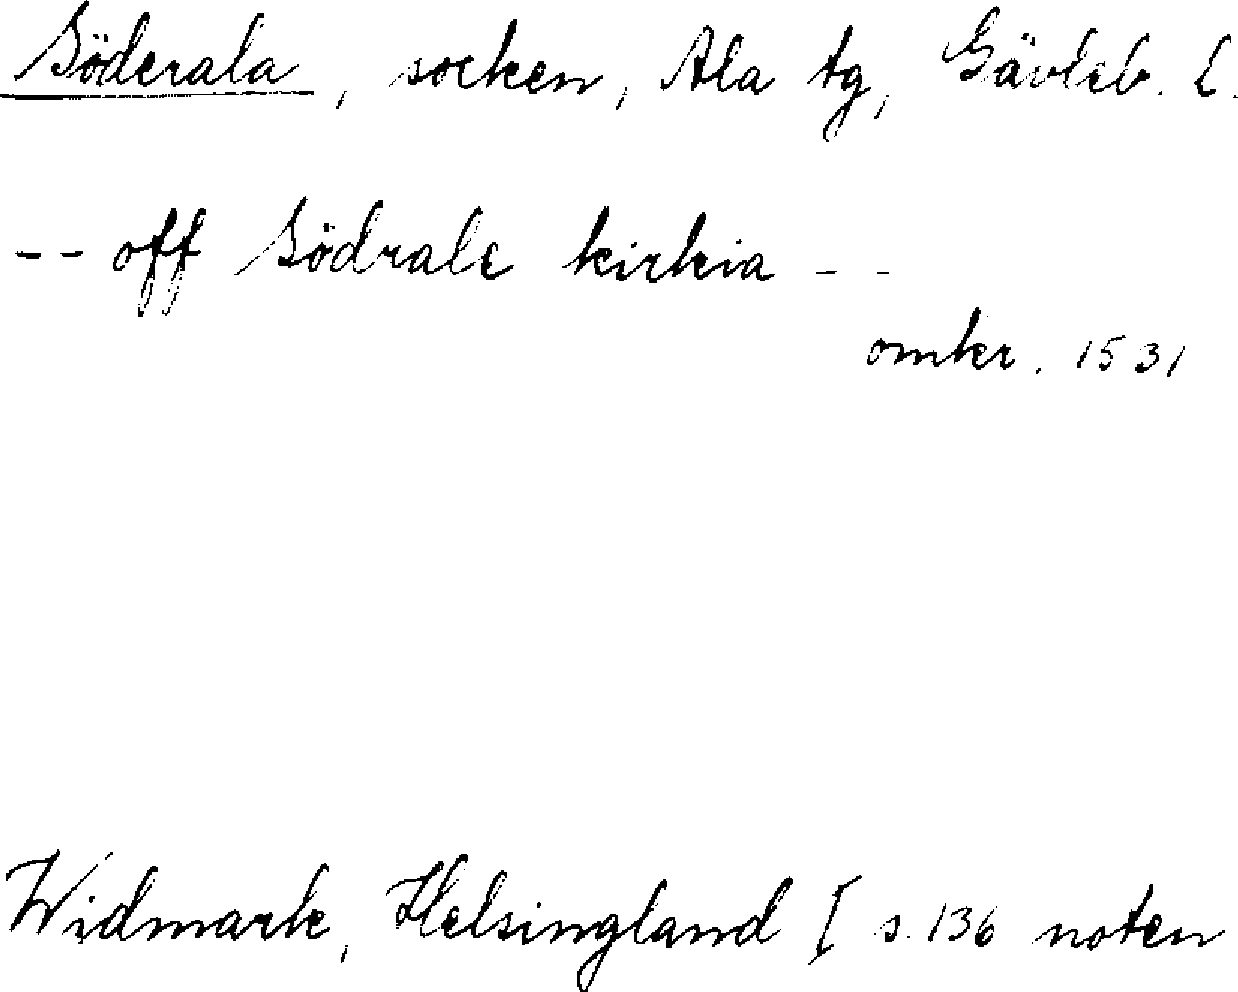 Söderala, socken, Ala tg, Gävleb. l.
-- off Södrale kirkia --
omkr. 1531
Widmark, Helsingland I s. 136 noten